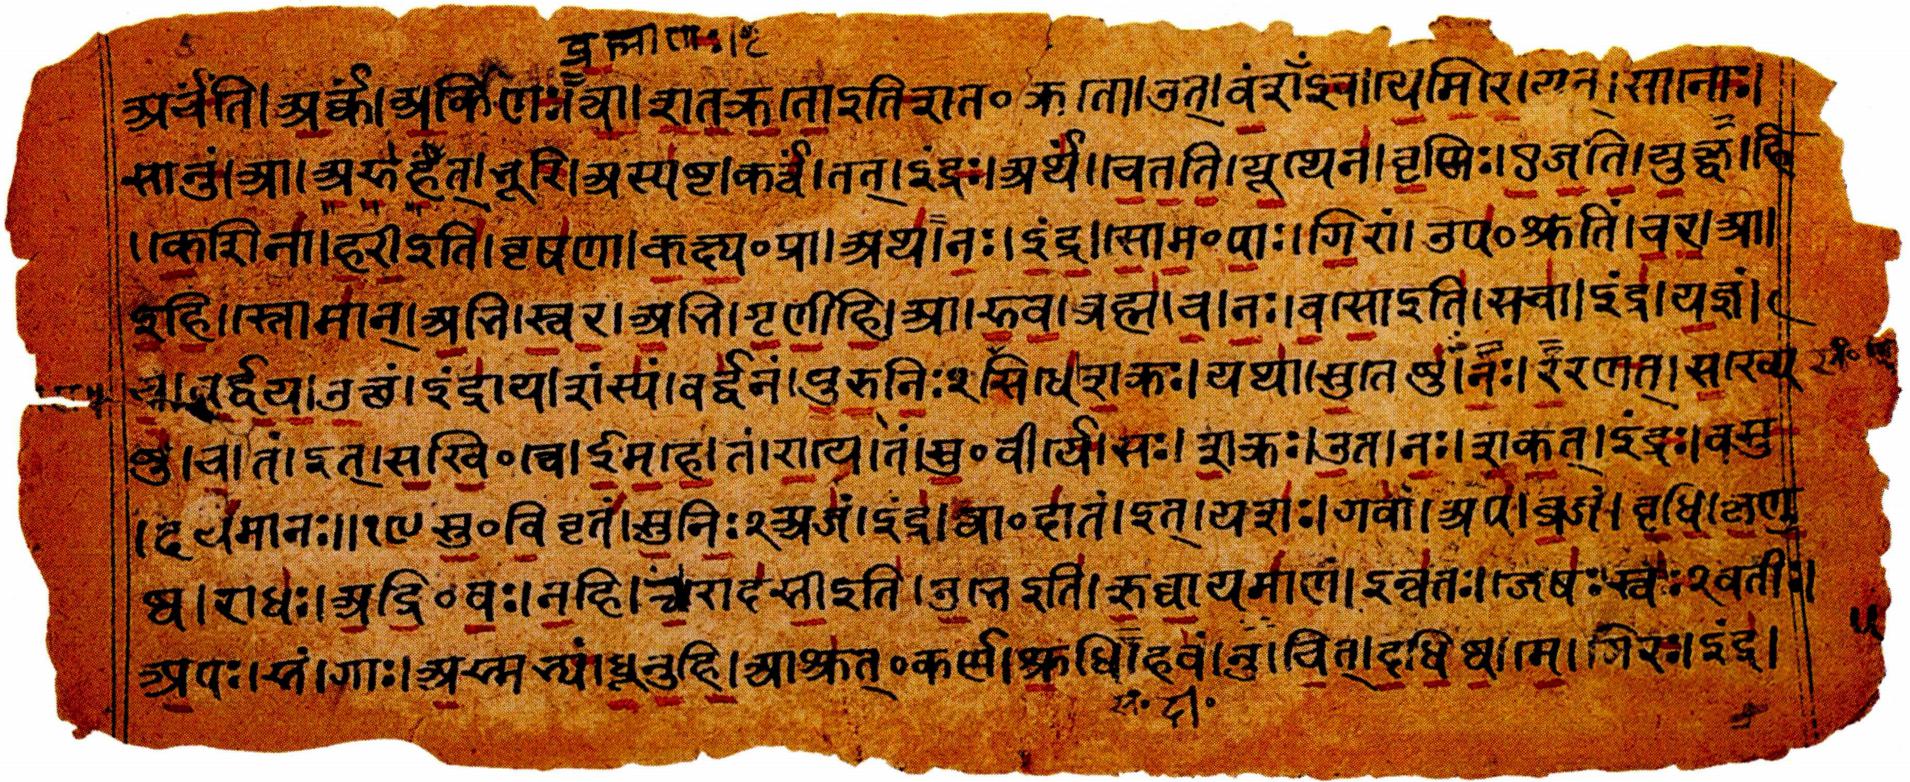 ब्रह्माणः।
अर्चंति। अर्कं। अर्किणः। त्वा। शतक्रतो इति शत॰ क्रतो। उत्। वंशंऽइव। येमिरे। यत्। सानोः।
सानुं। आ। अरुहत्। भूरि। अस्पष्ट। कर्त्वं। तत्। इंद्रः। अर्थं। चेतति। यूथेन। वृष्णिः। एजति। युक्ष्व। हि
। केशिना। हरी इति। वृषणा। कक्ष्य॰प्रा। अथ। नः। इंद्र। सोम॰पाः। गिरां। उप॰श्रुतिं। चर। आ।
इहि। स्तोमान्। अभि। स्वर। अभि। गृणीहि। आ। रुव। ब्रह्म। च। नः। वसो इति। सचा। इंद्र। यज्ञं।
च। वर्द्धय। उक्थं। इंद्राय। शंस्यं। वर्द्धनं। पुरुनिः२सिधे। शक्रः। यथा। सुतेषु। नः। ररणत्। सख्ये
षु। च। तं। इत्। सखि॰त्वे। ईमहे। तं। राये। तं। सु॰वीर्ये। सः। शक्रः। उत। नः। शकत्। इंद्रः। वसु
। दयमानः॥१९ सु॰विवृतं। सुनिः२अजं। इंद्र। त्वा॰दातं। इत्। यशः। गवां। अप। व्रजं। वृधि। कृणु
ष्व। राधः। अद्रि॰वः। नहि। त्वा। रोदसी इति। उभे इति। ऋघायमाणं। इन्वतः। जेषः। स्वः२वतीः।
अपः। सं। गाः। अस्मभ्यं। धूनुहि। आश्रुत्॰कर्ण। श्रुधि। हवं। नु। चित्। दधिष्व। मे। गिरः। इंद्र।